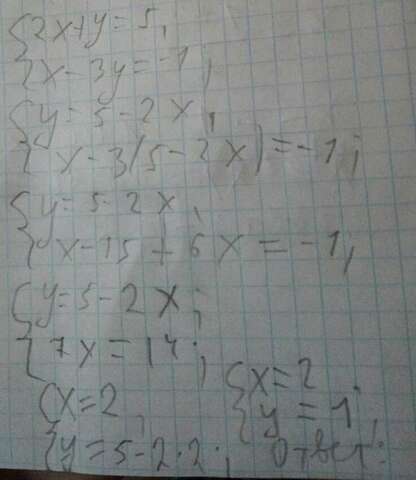 {2x+y=5,
{x-3y=-1;
{y=5-2x,
{x-3(5-2x)=-1;
{y=5-2x,
{x-15+6x=-1,
{y=5-2x;
{7x=14;
{x=2,
{y=5-2·2;
{x=2
{y=1,
Ответ: